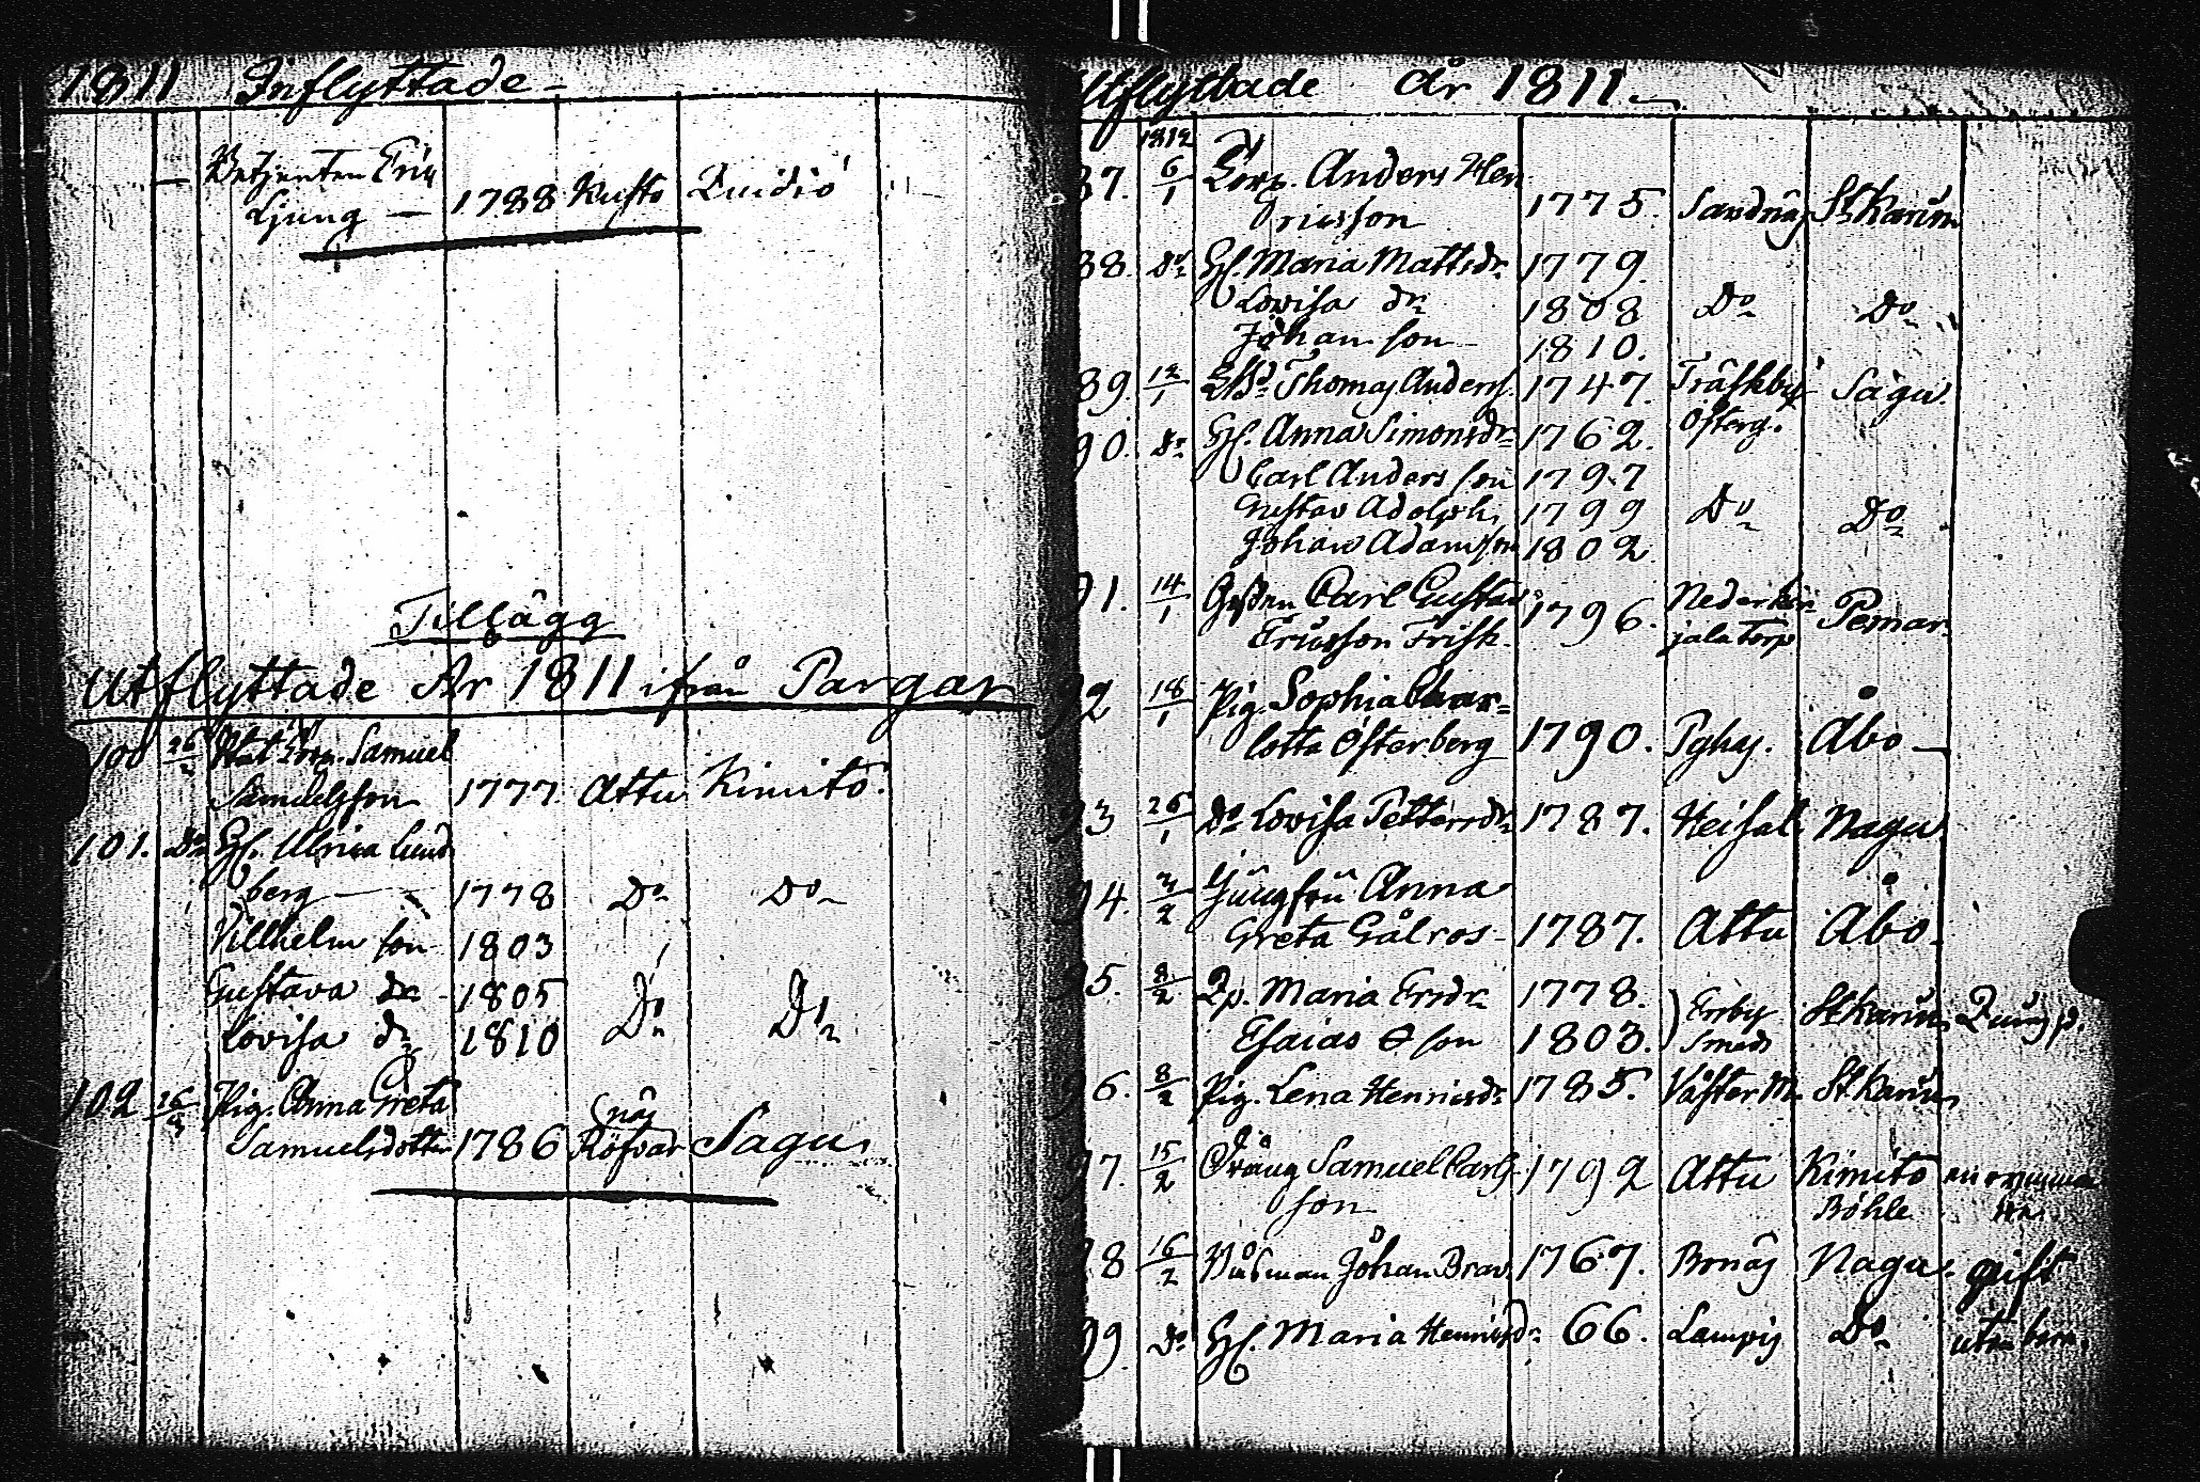 1811 Inflyttade -
Betjenten Eric
Ljung — 1788 Kusto Qvidiö
Tillägg
Utflyttade År 1811 ifrån Pargas
100 26/2 Torp. Samuel
Samuelsson 1777 Attu Kimito.
101. Do Hu. Ulrica Lund
berg — 1778 Do Do
Villhelm son 1803
Gustava dr 1805 Do Do
Lovisa dr 1810
102 26/3 Pig. Anna Greta
Samuelsdotter 1786 Röfvar näs Sagu
Utflyttade År 1811.
1812
87. 6/1 Torp. Anders Hen
ricsson 1775. Sandnäs St Karins
88. Do Hu. Maria Mattsdr 1779.
Lovisa dr 1808 Do Do
Johan son 1810.
89. 12/1 Thomas Anderss. 1747. Träskby Sagu.
90. Do Hu. Anna Simonsdr 1762. Österg.
Carl Anders son 1797
Gustav Adolph 1799 Do Do
Johan Adam son 1802
91. 14/1 Carl Gustav
Ericsson Frisk. 1796. Nederkir
jala Torp Pemar
92 18/1 Pig. Sophia Char=
lotta Österberg 1790. Pghg. Åbo —
93 26/1 Do Lovisa Pettersdr 1787. Heisal. Nagu
94. 3/2 Jungfru Anna
Greta Gålros - 1787. Attu Åbo.
95. 8/2 Qp. Maria Ersdr 1778.
Esaias son 1803. Ersby Smeds St Karins
96. 8/2 Pig. Lena Henricsdr 1785. Väster M. St Karins
97. 15/2 Dräng Samuel Carls
son 1792 Attu Kimito
Böhle
98 16/2 Johan Brav. 1767. Bonäs Nagu. gift
99 Do Hu. Maria Henricsdr 66. Lampis Do utan barn.